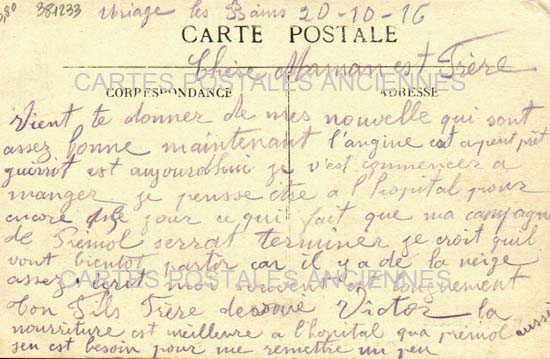 0,80 381233 Uriage les Bains 20-10-16
CARTE POSTALE
Chère Maman est Frère
CARTES POSTALES ANCIENNES
CORRESPONDANCE ADRESSE
Vient te donner de mes nouvelle qui sont
assez bonne maintenant l'angine est a peut prèt
guérrit est aujourdhui je v'est commencer a
manger je pensse être a l'hopital pour
encore jour ce qui fait que ma campagne
de Prémol serrat terminer je croit quil
vont bientot partir car il y a de la neige
CARTES POSTALES ANCIENNES
assez
Ton Fils Frère Victor la
nourriture est meilleure a l'hopital qua prémol aussi
jen est besoin pour me remettre un peu